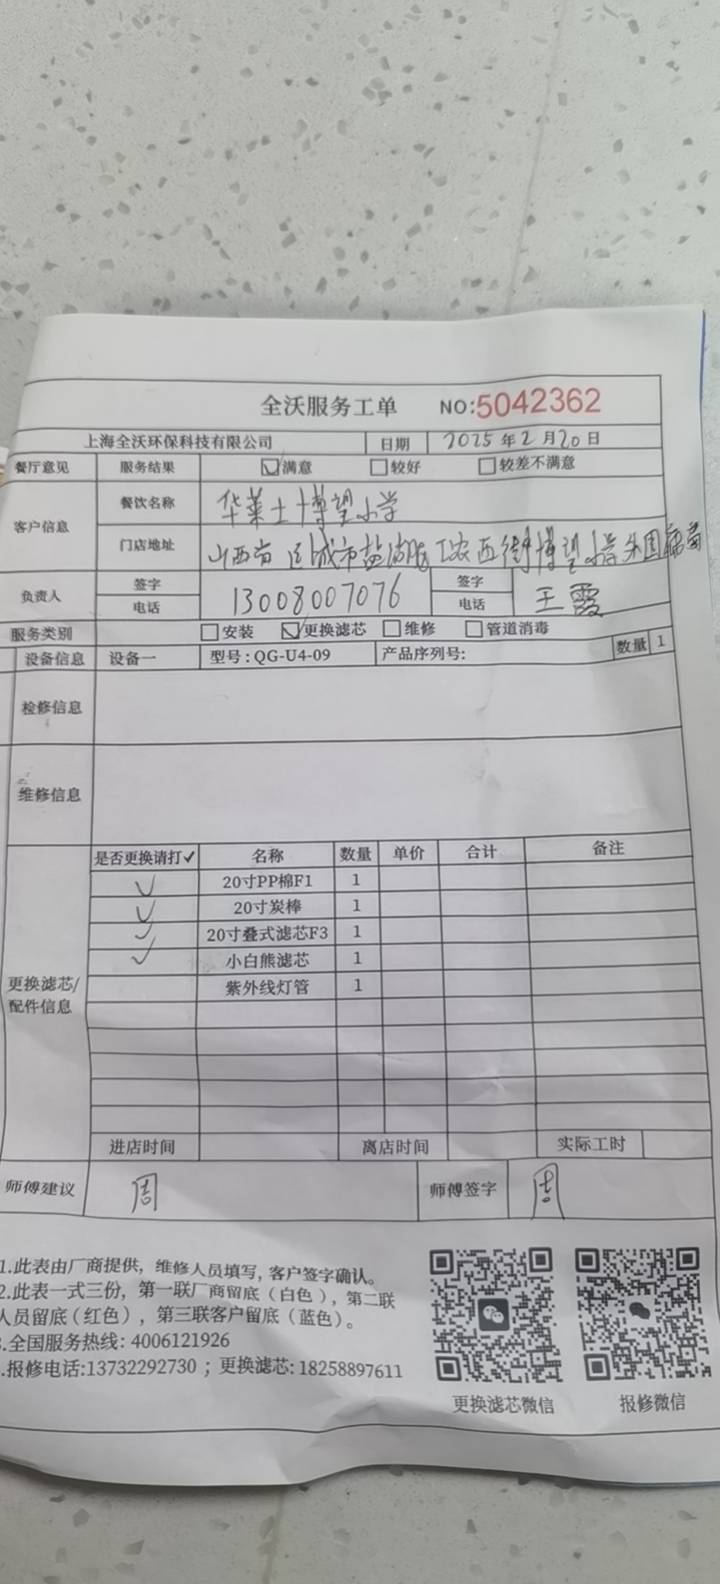 全沃服务工单 NO:5042362
上海全沃环保科技有限公司 日期 2025年2月20日
餐厅意见 服务结果 ☑满意 ☐较好 ☐较差不满意
客户信息 餐饮名称 华莱士博望小学
门店地址 山西省 城市盐湖 工农西街博望小学
负责人 签字 签字
电话 13008007076 电话 王霞
服务类别 ☐安装 ☑更换滤芯 ☐维修 ☐管道消毒
设备信息 设备一 型号:QG-U4-09 产品序列号: 数量 1
检修信息
维修信息
是否更换请打✓ 名称 数量 单价 合计 备注
✓ 20寸PP棉F1 1
✓ 20寸炭棒 1
✓ 20寸叠式滤芯F3 1
✓ 小白熊滤芯 1
紫外线灯管 1
更换滤芯/
配件信息
进店时间 离店时间 实际工时
师傅建议 周 师傅签字 周
1.此表由厂商提供，维修人员填写，客户签字确认。
2.此表一式三份，第一联厂商留底（白色），第二联
人员留底（红色），第三联客户留底（蓝色）。
.全国服务热线: 4006121926
.报修电话:13732292730 ；更换滤芯: 18258897611
更换滤芯微信 报修微信